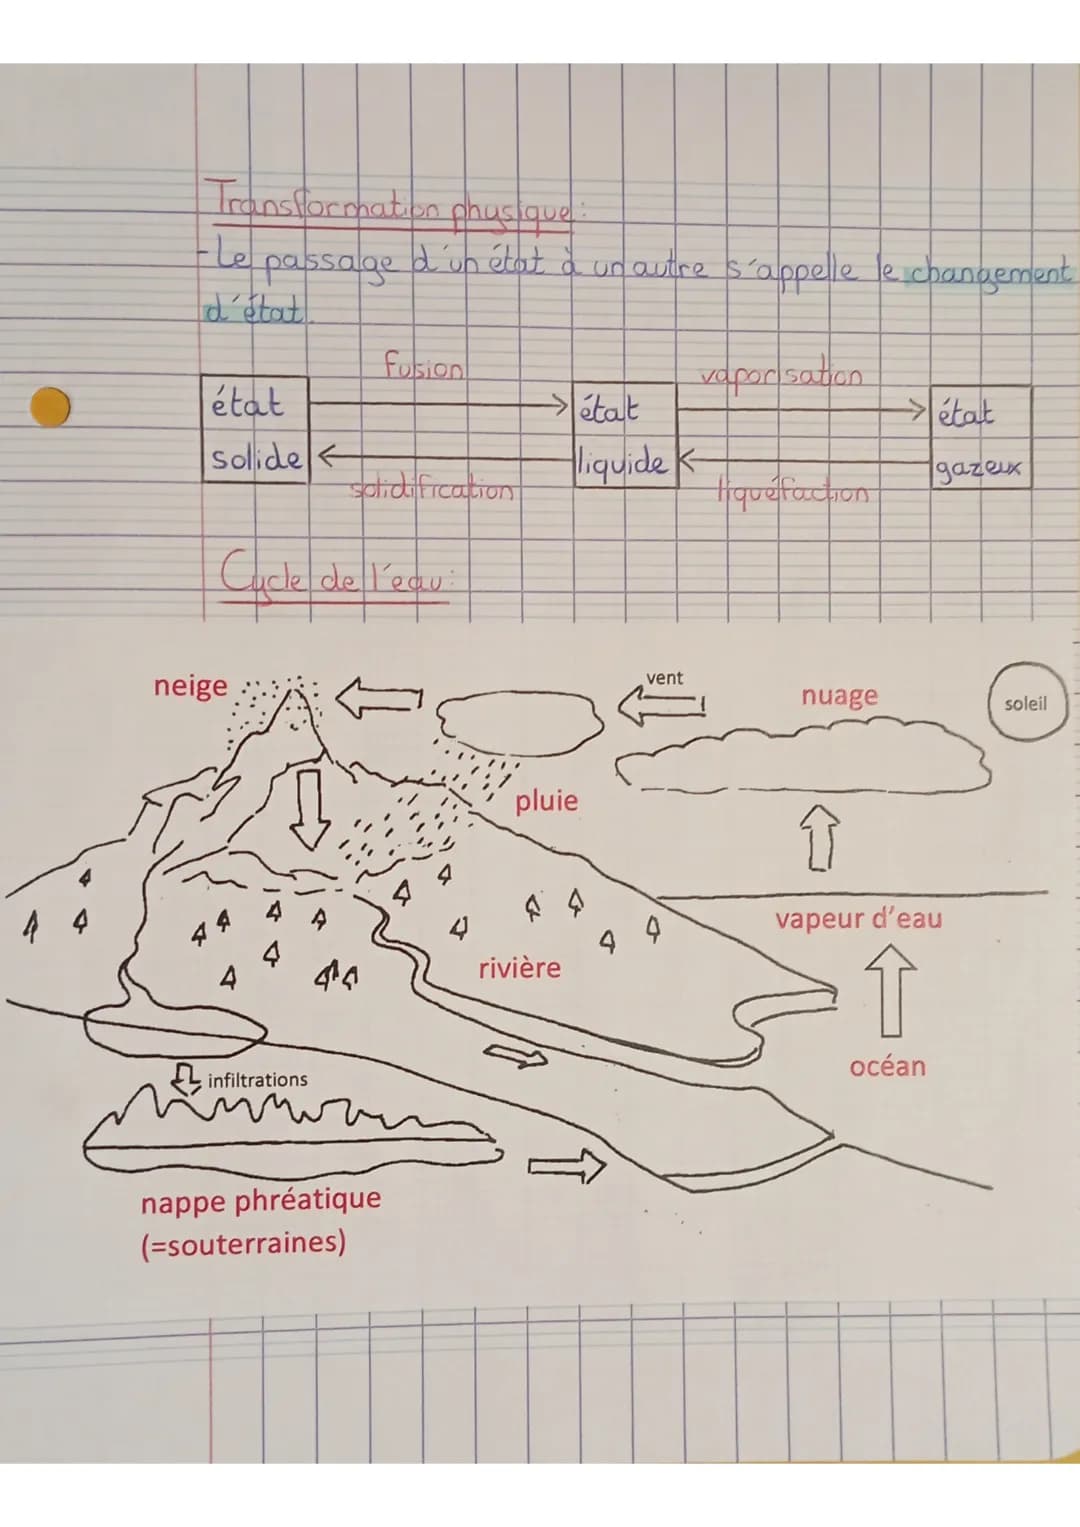 Transformation physique:
-Le passage d'un état à un autre s'appelle le changement
d'état.
fusion
vaporisation
état
solide
état
liquide
état
gazeux
solidification
liquéfaction
Cycle de l'eau:
neige
vent
nuage
soleil
pluie
vapeur d'eau
rivière
océan
infiltrations
nappe phréatique
(=souterraines)